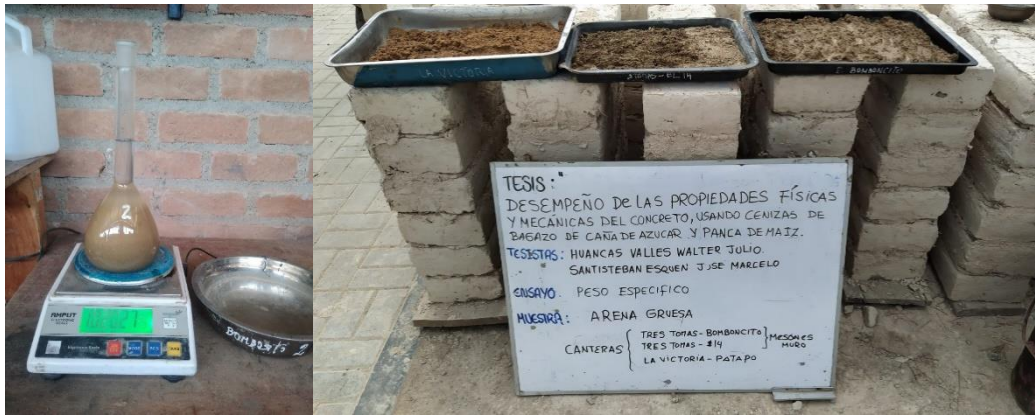 2
AMPUT
BOMBONCITO 2
LA VICTORIA
3 TOMAS - EL 14
T. BOMBONCITO
TESIS:
DESEMPEÑO DE LAS PROPIEDADES FÍSICAS
Y MECÁNICAS DEL CONCRETO, USANDO CENIZAS DE
BAGAZO DE CAÑA DE AZUCAR Y PANCA DE MAIZ.
TESISTAS: HUANCAS VALLES WALTER JULIO.
SANTISTEBAN ESQUEN JOSE MARCELO
ENSAYO: PESO ESPECIFICO
MUESTRA: ARENA GRUESA
CANTERAS
TRES TOMAS - BOMBONCITO
TRES TOMAS - #14
MESONES MURO
LA VICTORIA - PATAPO